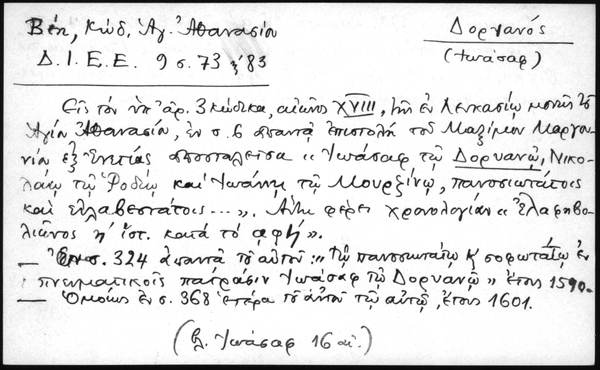 Βέη, Κώδ. Ἁγ. Ἀθανασίου
Δορυανός
Δ. Ι. Ε. Ε. 9 σ. 73 & 83
(Ἰωάσαφ)
Εἰς τὸν ὑπ' ἀρ. 3 κώδικα, αἰῶνος XVIII, τῆς ἐν Λευκασίῳ μονῆς τοῦ
Ἁγίου Ἀθανασίου, ἐν σ. 6 ἀπαντᾷ ἐπιστολὴ τοῦ Μαξίμου Μαργου-
νίου ἐξ Ἐνετίας ἀποσταλεῖσα «Ἰωάσαφ τῷ Δορυανῷ, Νικο-
λάῳ τῷ Ῥοδίῳ καὶ Ἰωάννῃ τῷ Μουρζίνῳ, πανοσιωτάτοις
καὶ εὐλαβεστάτοις...». Αὕτη φέρει χρονολογίαν «Ἐλαφηβο-
λιῶνος η' ἱστ. κατὰ τὸ αφϟ».
— Ἐν σ. 324 ἀπαντᾷ τοῦ αὐτοῦ: «Τῷ πανοσιωτάτῳ κ' σοφωτάτῳ ἐν
πνευματικοῖς πατράσιν Ἰωάσαφ τῷ Δορυανῷ» ἔτους 1590.
— Ὁμοίως ἐν σ. 368 ἑτέρα τοῦ αὐτοῦ τῷ αὐτῷ, ἔτους 1601.
(βλ. Ἰωάσαφ 16 αἰ.)